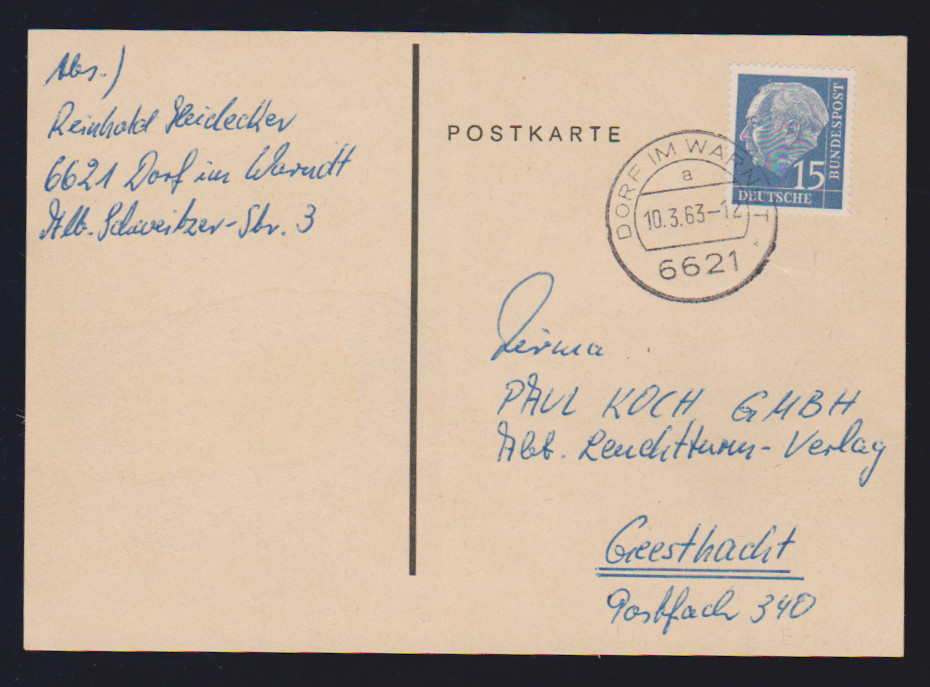 Abs.)
Reinhold Heidecker
6621 Dorf im Warndt
Alb. Schweitzer-Str. 3
POSTKARTE
DORF IM WARNDT
a
10.3.63-12
6621
15
DEUTSCHE
BUNDESPOST
Firma
PAUL KOCH GMBH
Abt. Leuchtturm-Verlag
Geesthacht
Postfach 340